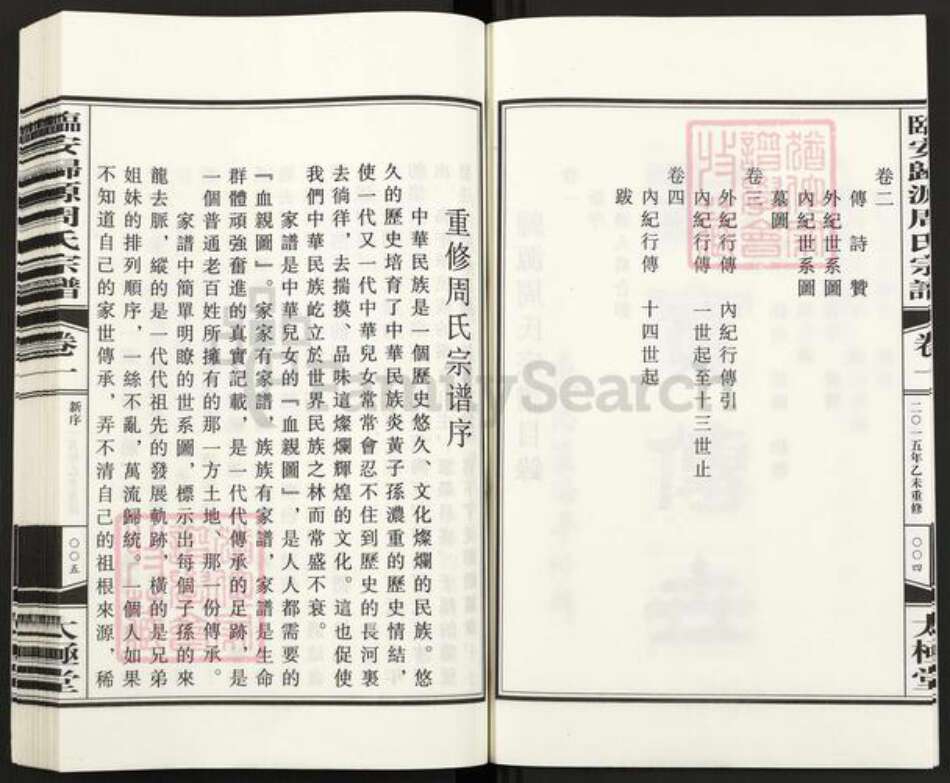 臨安歸源周氏宗譜
卷一
二〇一五年乙未重修
〇〇四
太極堂
卷二
傳 詩 贊
外紀世系圖
內紀世系圖
墓圖
卷三
外紀行傳 內紀行傳引
內紀行傳 一世起至十三世止
卷四
內紀行傳 十四世起
跋
重修周氏宗谱序
中華民族是一個歷史悠久、文化燦爛的民族。悠
久的歷史培育了中華民族炎黃子孫濃重的歷史情結，
使一代又一代中華兒女常常會忍不住到歷史的長河裏
去徜徉、去揣摸、品味這燦爛輝煌的文化。這也促使
我們中華民族屹立於世界民族之林而常盛不衰。
家譜是中華兒女的『血親圖』，是人人都需要的
『血親圖』。家家有家譜，族族有家譜，家譜是生命
群體頑強奮進的真實記載，是一代代傳承的足跡，是
一個普通老百姓所擁有的那一方土地、那一份傳承。
家譜中簡單明瞭的世系圖，標示出每個子孫的來
龍去脈，縱的是一代代祖先的發展軌跡，橫的是兄弟
姐妹的排列順序，一絲不亂，萬流歸統。一個人如果
不知道自己的家世傳承，弄不清自己的祖根來源，稀
臨安歸源周氏宗譜
卷一
新序
〇〇五
太極堂
FamilySearch